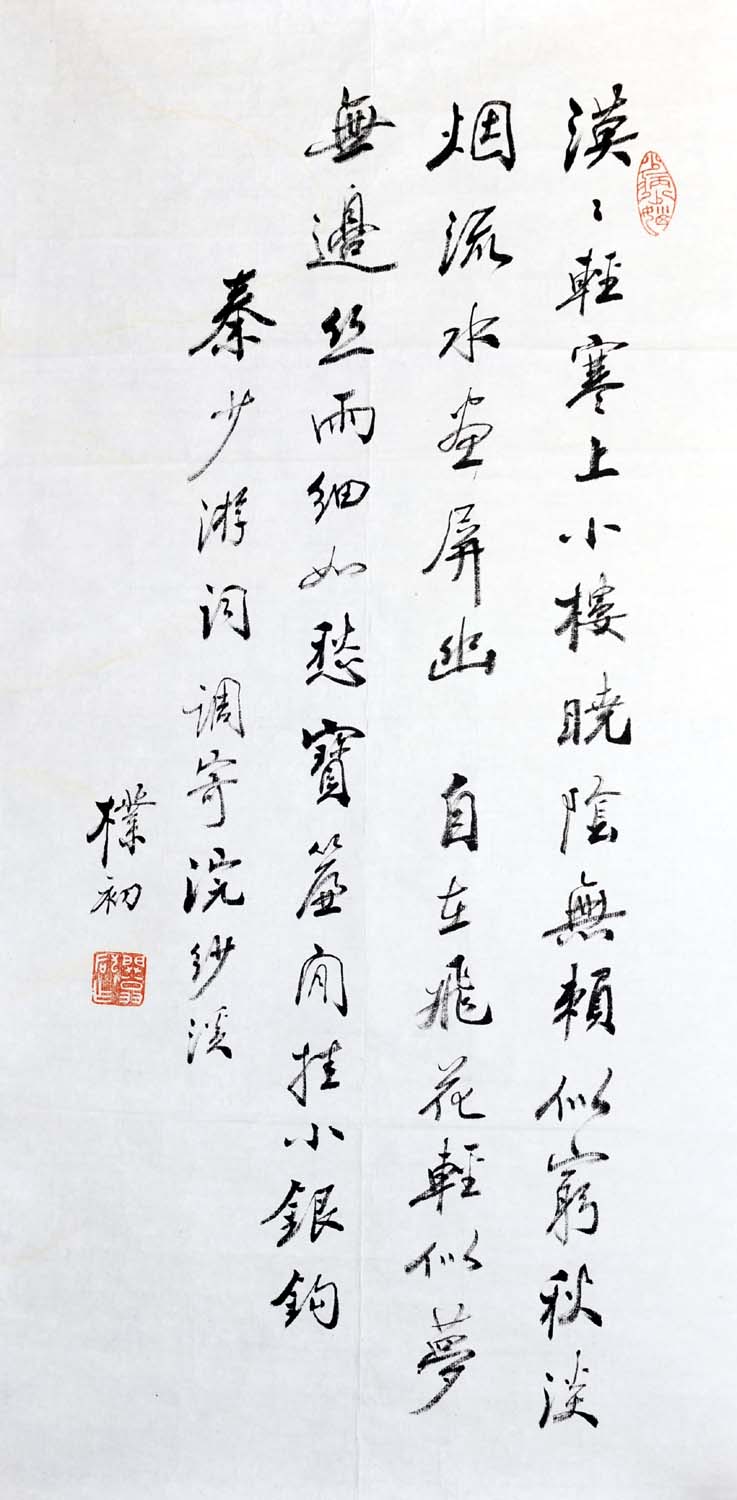 漠〻輕寒上小樓曉陰無賴似窮秋淡
烟流水畫屏幽 自在飛花輕似夢
無邊丝雨細如愁寶簾间挂小銀鈎
秦少游词调寄浣纱溪
樸初